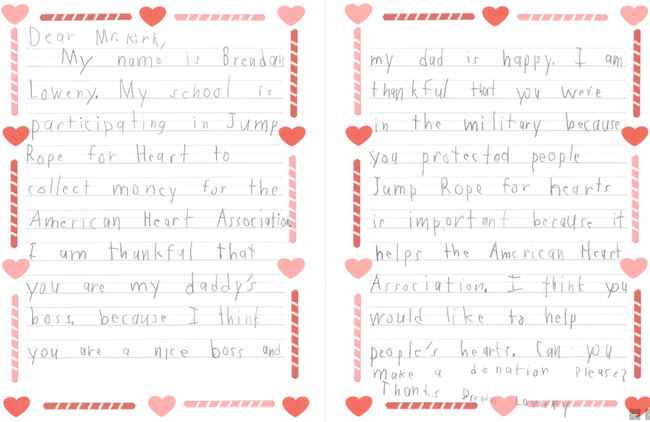 Dear Mr. Kirk,
My name is Brendan
Lowery. My school is
participating in Jump
Rope for Heart to
collect money for the
American Heart Association.
I am thankful that
you are my daddy's
boss, because I think
you are a nice boss and
my dad is happy. I am
thankful that you were
in the military because
you protected people
Jump Rope for hearts
is important because it
helps the American Heart
Association. I think you
would like to help
people's hearts. Can you
make a donation please?
Thanks Brendan Lowery